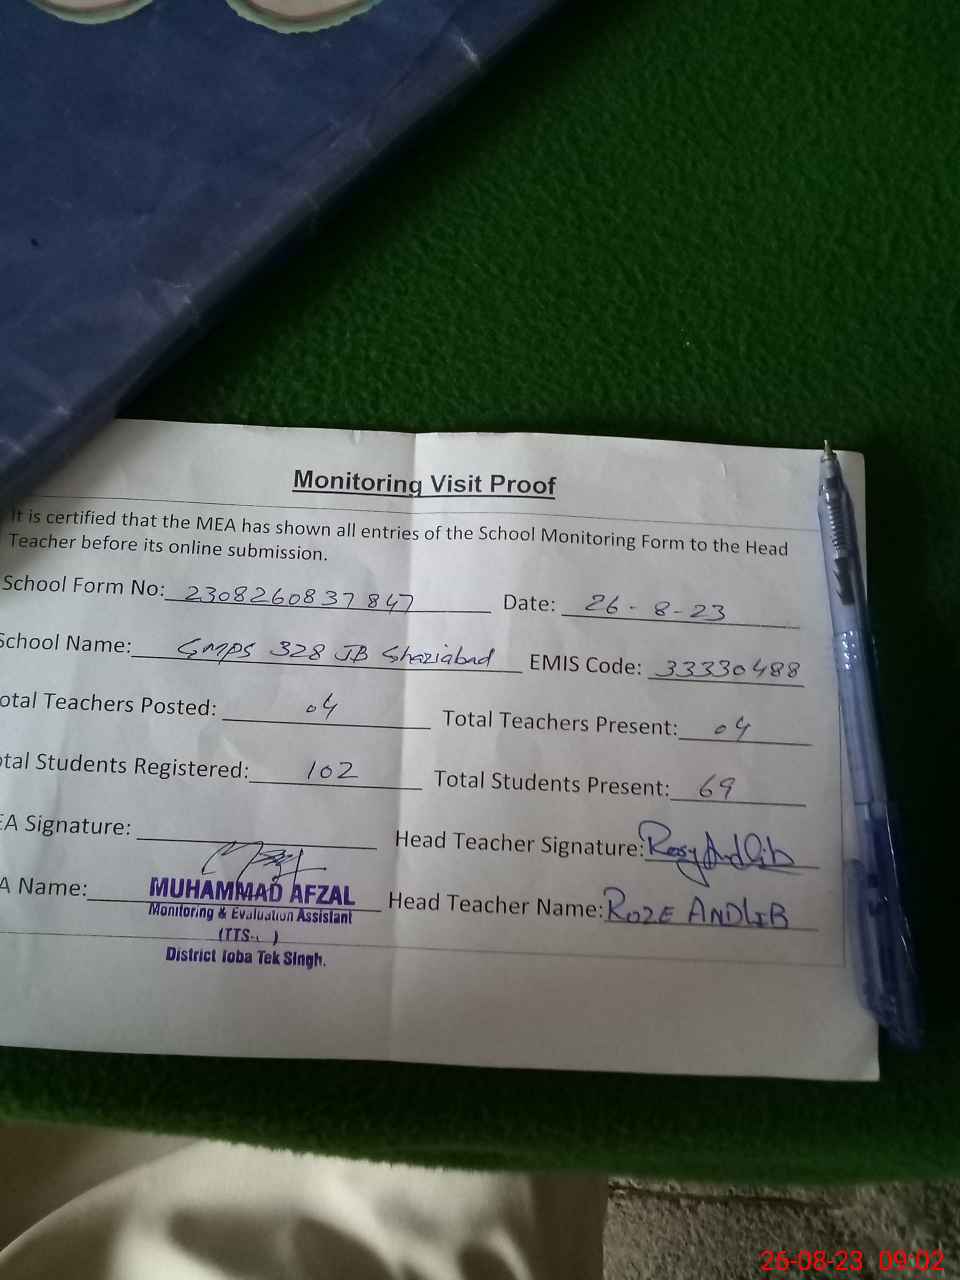 Monitoring Visit Proof
It is certified that the MEA has shown all entries of the School Monitoring Form to the Head
Teacher before its online submission.
School Form No: 2308260837847 Date: 26-8-23
School Name: GMPS 328 JB Ghaziabad EMIS Code: 33330488
otal Teachers Posted: 04 Total Teachers Present: 04
otal Students Registered: 102 Total Students Present: 69
EA Signature: Head Teacher Signature: Rosy Andlib
A Name: MUHAMMAD AFZAL Head Teacher Name: ROZE ANDLIB
Monitoring & Evaluation Assistant
(TTS- )
District Toba Tek Singh.
26-08-23 09:02